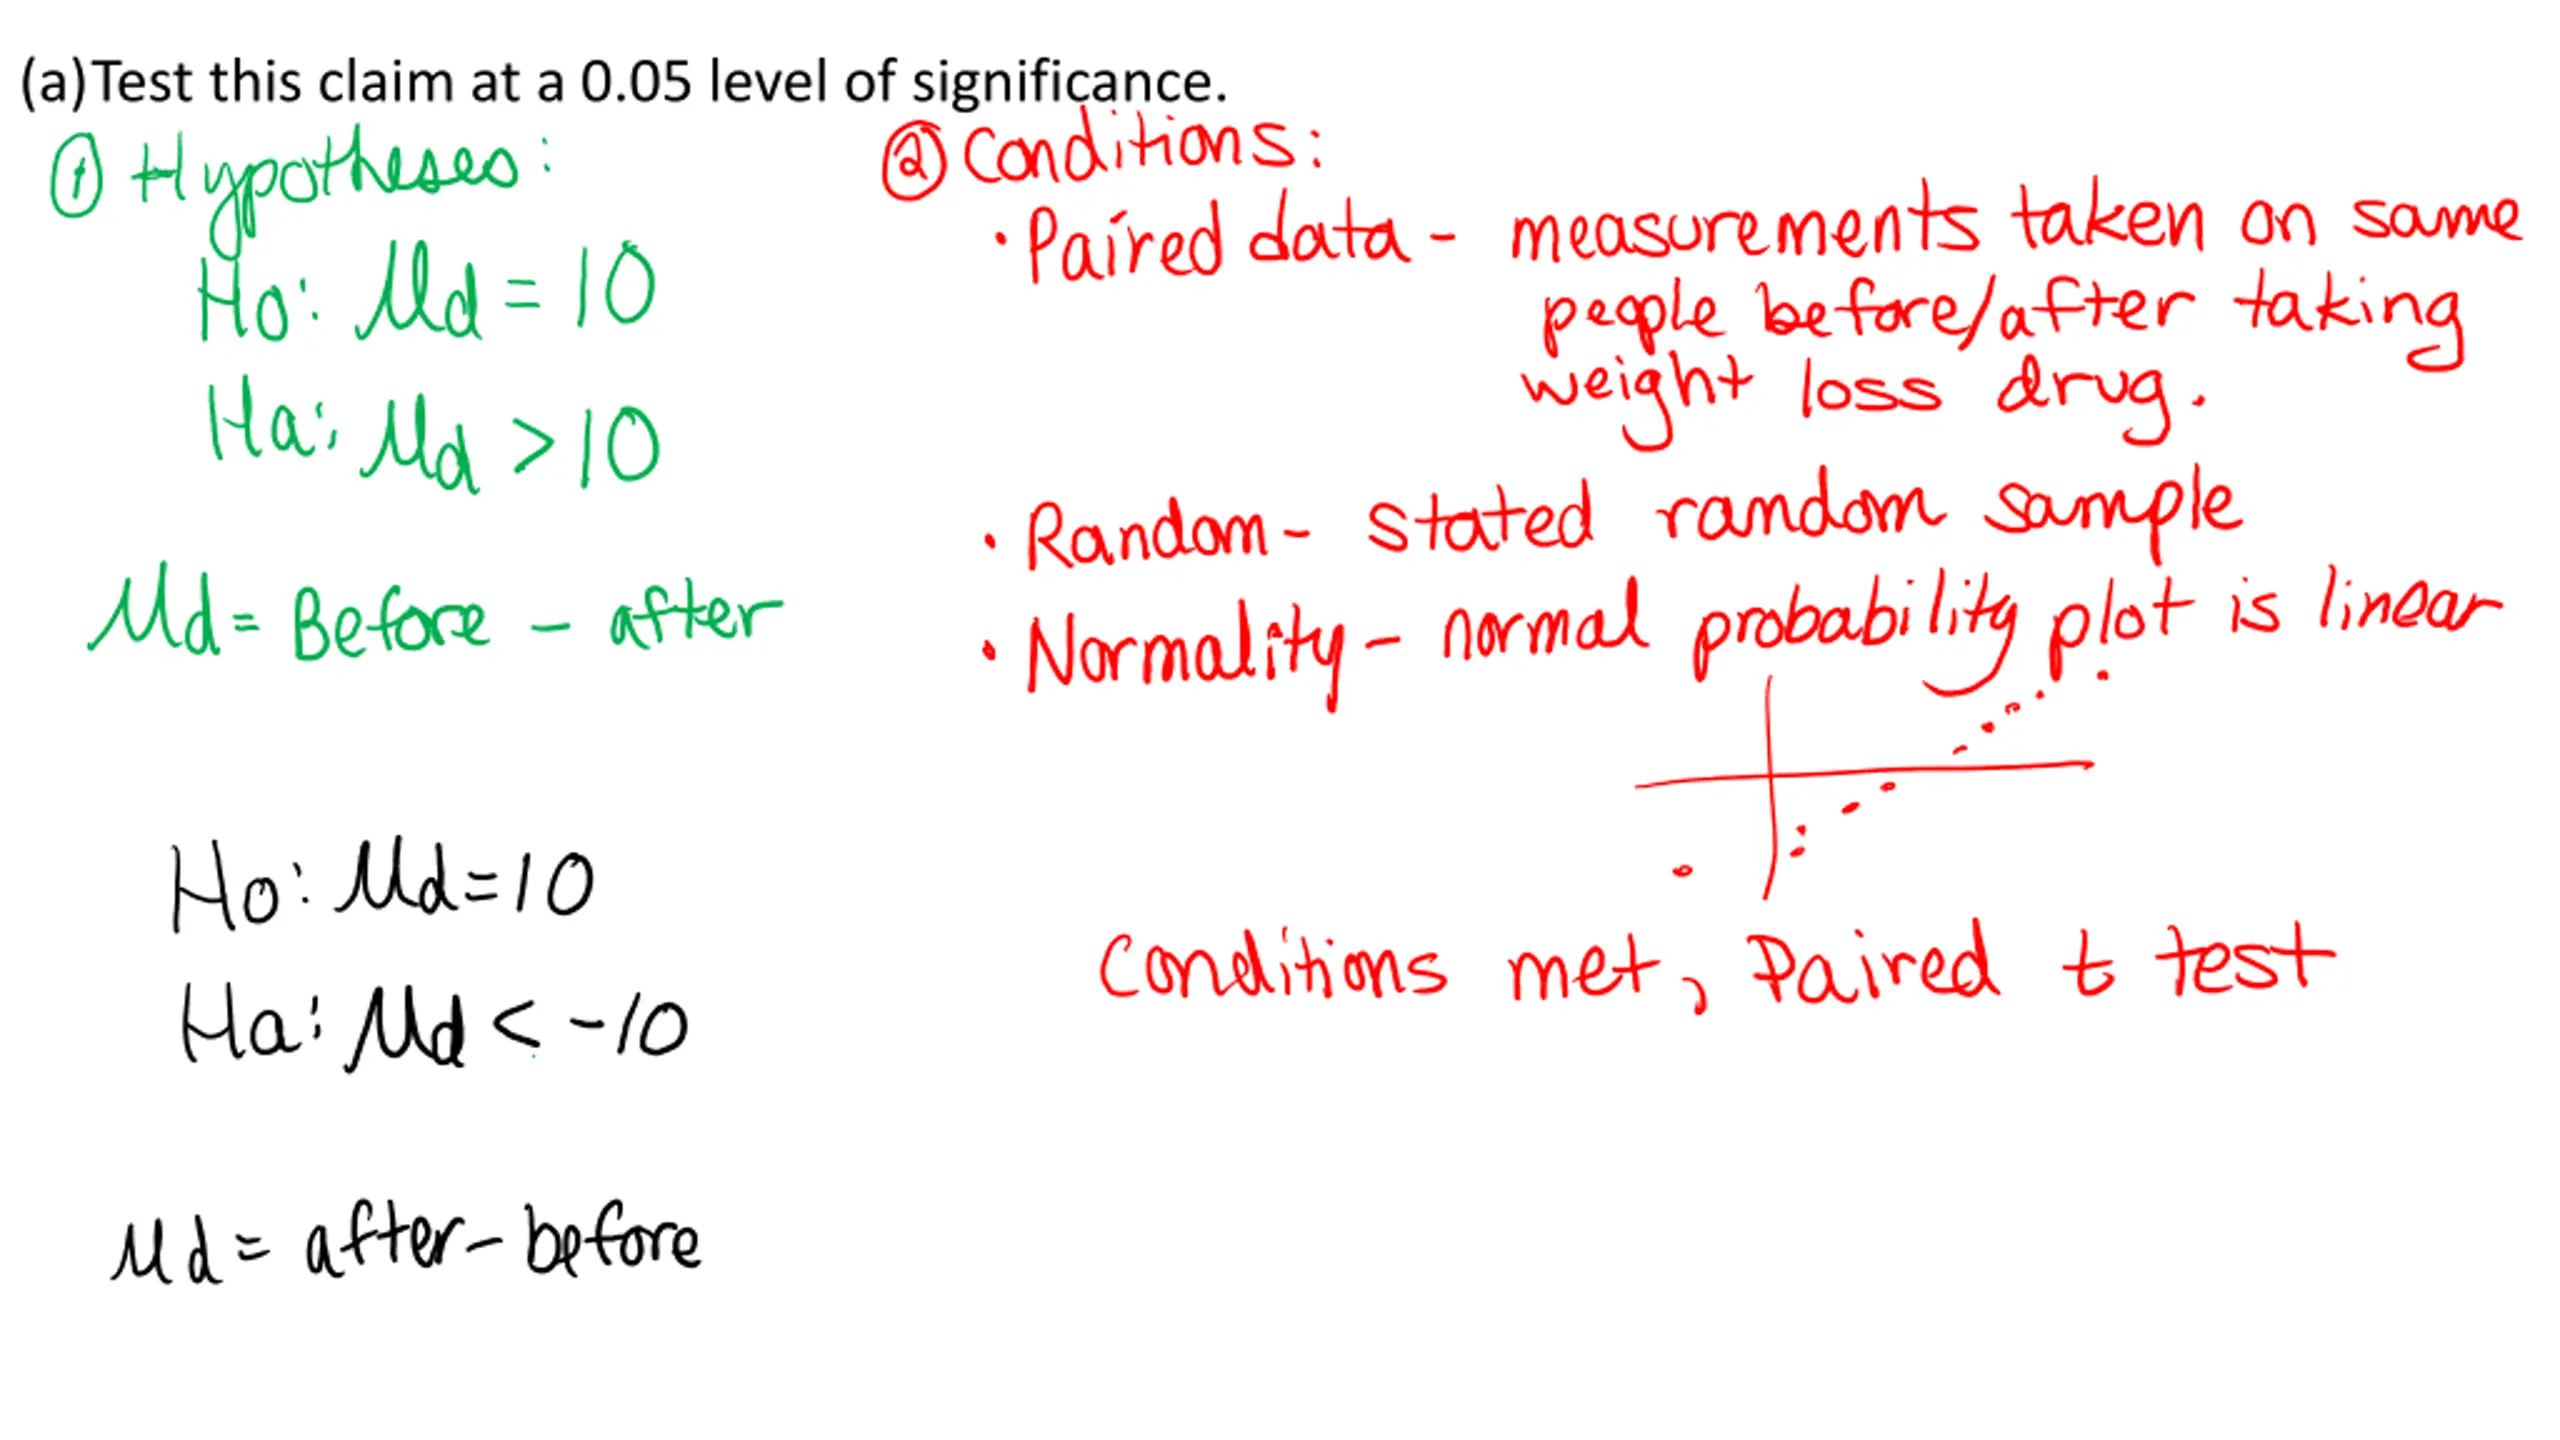 (a) Test this claim at a 0.05 level of significance.
① Hypotheses:
Ho: μd = 10
Ha: μd > 10
μd = Before - after
Ho: μd = 10
Ha: μd < -10
μd = after - before
② Conditions:
• Paired data - measurements taken on same
people before/after taking
weight loss drug.
• Random - stated random sample
• Normality - normal probability plot is linear
Conditions met, Paired t test